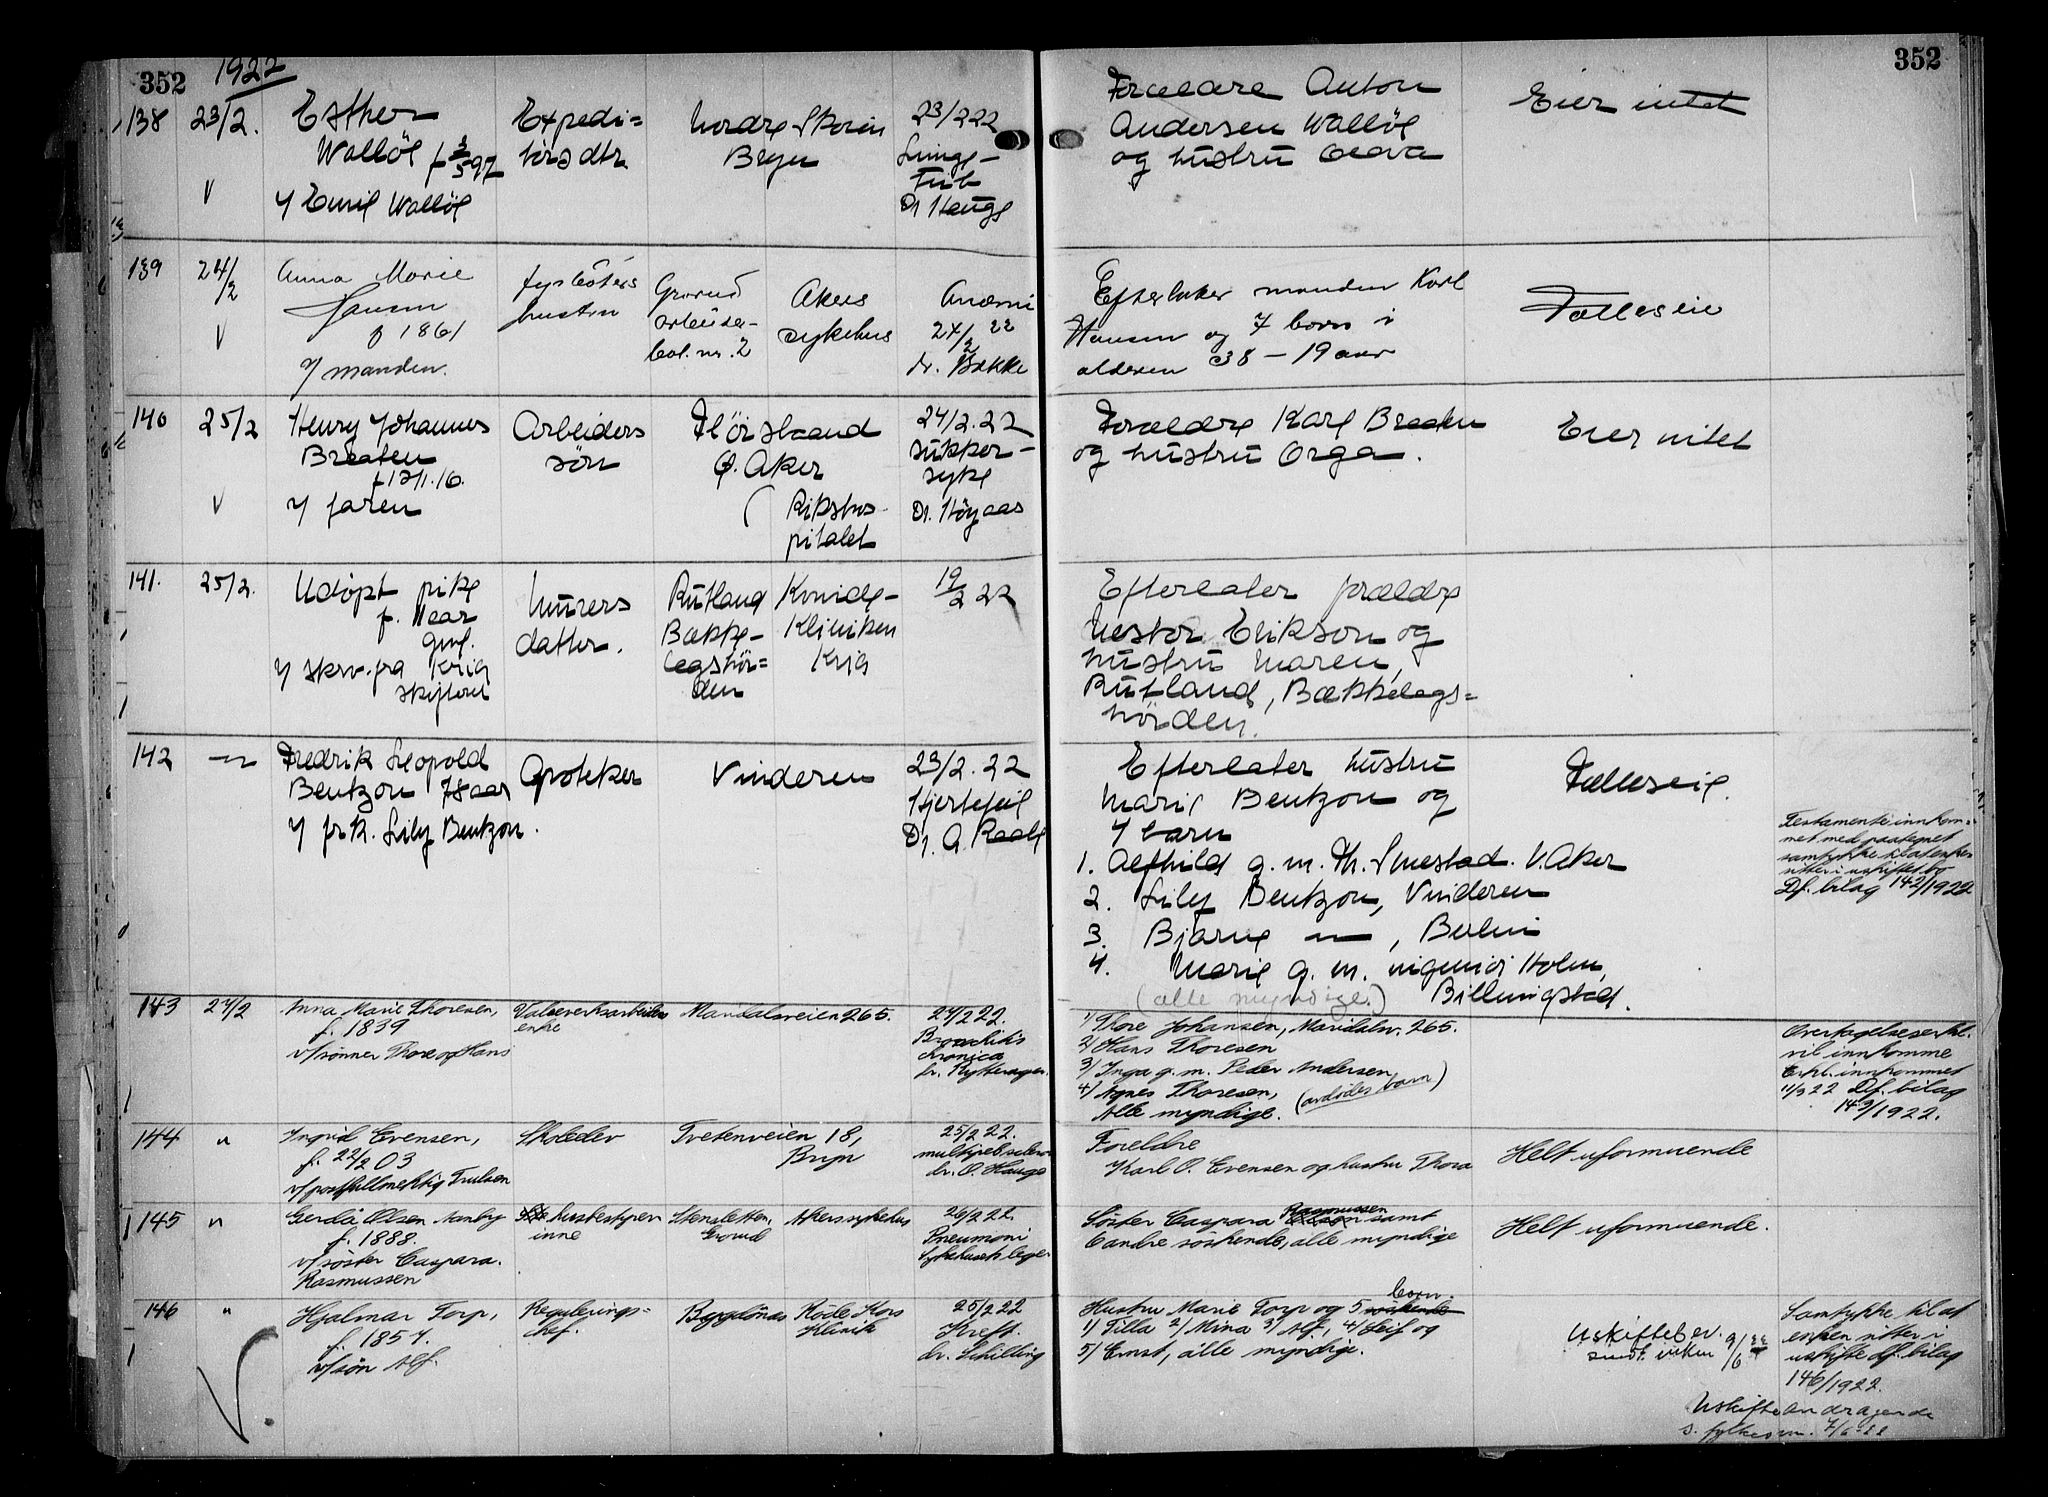 352
1922
352
138
23/2.
Esther
Walløe f 3/5 97
v/ Emil Walløe
Expedi=
tørs dtr.
Nordre Skøien
Bryn
23/2 22
Lunge-
tub
Dr Hauge
Forældre Anton
Andersen Walløe
og hustru Olava
Eier intet
139
24/2
Anna Marie
Hansen
f 1861
v/ manden.
fyrbøters
hustru
Grorud
arbeider-
bol. nr. 2
Akers
sykehus
Anæmi
24/2 22
dr. Bakke
Efterlater manden Karl
Hansen og 7 barn i
alderen 38 - 19 aar
Fælleseie
140
25/2
Henry Johannes
Breaten
f 13/1.16.
v/ faren
Arbeiders
søn
Fløisbaand
Ø. Aker
( Rikshos-
pitalet
24/2.22
sukker-
syke
Dr. Høyaas
Forældre Karl Braaten
og hustru Orga.
Eier intet
141.
25/2.
Udøpt pike
v/ skrv. fra Kria
skifteret
Murers
datter.
Rutland
Bække-
lagshøg=
den
Kvinde-
Klinikken
Kria
19/2 22
Efterlater forældre
Nestor Erikson og
hustru Maren,
Rutland, Bækkelags=
høiden.
142
—"—
Fredrik Leopold
Bentzon 78 aar
v/ frk. Lily Bentzon.
Apoteker
Vinderen
23/2.22
Hjertefeil
Dr. G. Raabe
Efterlater hustru
Marie Bentzon og
4 barn
1. Alfhild g. m. Th. Smestad. V. Aker
2. Lily Bentzon, Vinderen
3. Bjarne —"—, Berlin
4. Marie g. m. ingeniør Holm,
(alle myndige.) Billingstad.
Fælleseie.
Testamente innkom-
met med paategnet
samtykke til at enken
sitter i uskiftet bo
Df. bilag 142/1922
143
27/2
Anna Marie Thoresen,
f. 1839
v/ sønner Thore og Hans
Valseverksarbeiders
enke
Maridalsveien 265.
24/2 22.
Bronchitis
chronica
dr. Rytterager.
1) Thore Johansen, Maridalsv. 265.
2) Hans Thoresen
3) Inga g. m. Peder Andersen
4) Agnes Thoresen, (avdødes barn)
Alle myndige.
Overtagelseserkl.
vil innkomme
Erkl. innkommet
11/3 22 Df. bilag
143/1922.
144
"
Ingrid Evensen,
f. 22/2 03
v/ postfullmektig Trulsen
Skoleelev
Tvetenveien 18,
Bryn
25/2 22.
multipel sclerose
dr. O. Hauge
Foreldre
Karl O. Evensen og hustru Thora
Helt uformuende
145
"
Gerda Olsen Aanby
f. 1888.
v/ søster Caspara
Rasmussen
husbestyrer
inne
Stensletten,
Grorud
Akers sykehus
26/2 22.
Pneumoni
Sykehusets lege
Søster Caspara Rasmussen samt
6 andre søskende, alle myndige
Helt uformuende.
146
"
Hjalmar Torp,
f. 1857.
v/ søn Alf.
Regulerings=
chef.
Bygdönæs
Røde Kors
Klinik
25/2 22
Kreft.
dr. Schilling
Hustru Marie Torp og 5 søskende barn.
1) Tilla 2) Mina 3) Alf, 4) Leif og
5) Ernst, alle myndige.
Uskiftebev.
sendt enken 9/6 22
Samtykke til at
enken sitter i
uskifte df. bilag
146/1922.
Uskifteandragende
s. fylkesm. 7/6 22